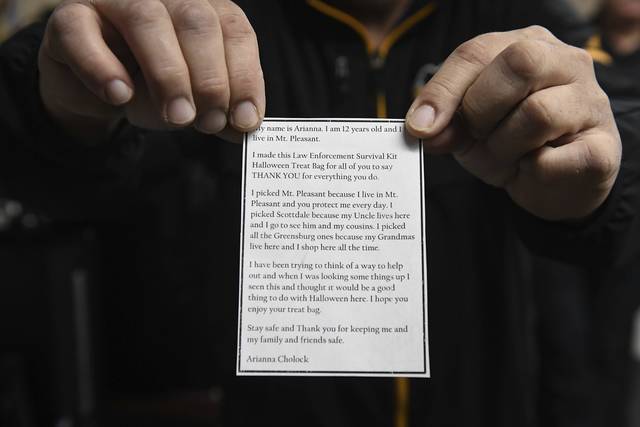 My name is Arianna. I am 12 years old and I
live in Mt. Pleasant.
I made this Law Enforcement Survival Kit
Halloween Treat Bag for all of you to say
THANK YOU for everything you do.
I picked Mt. Pleasant because I live in Mt.
Pleasant and you protect me every day. I
picked Scottdale because my Uncle lives here
and I go to see him and my cousins. I picked
all the Greensburg ones because my Grandmas
live here and I shop here all the time.
I have been trying to think of a way to help
out and when I was looking some things up I
seen this and thought it would be a good
thing to do with Halloween here. I hope you
enjoy your treat bag.
Stay safe and Thank you for keeping me and
my family and friends safe.
Arianna Cholock